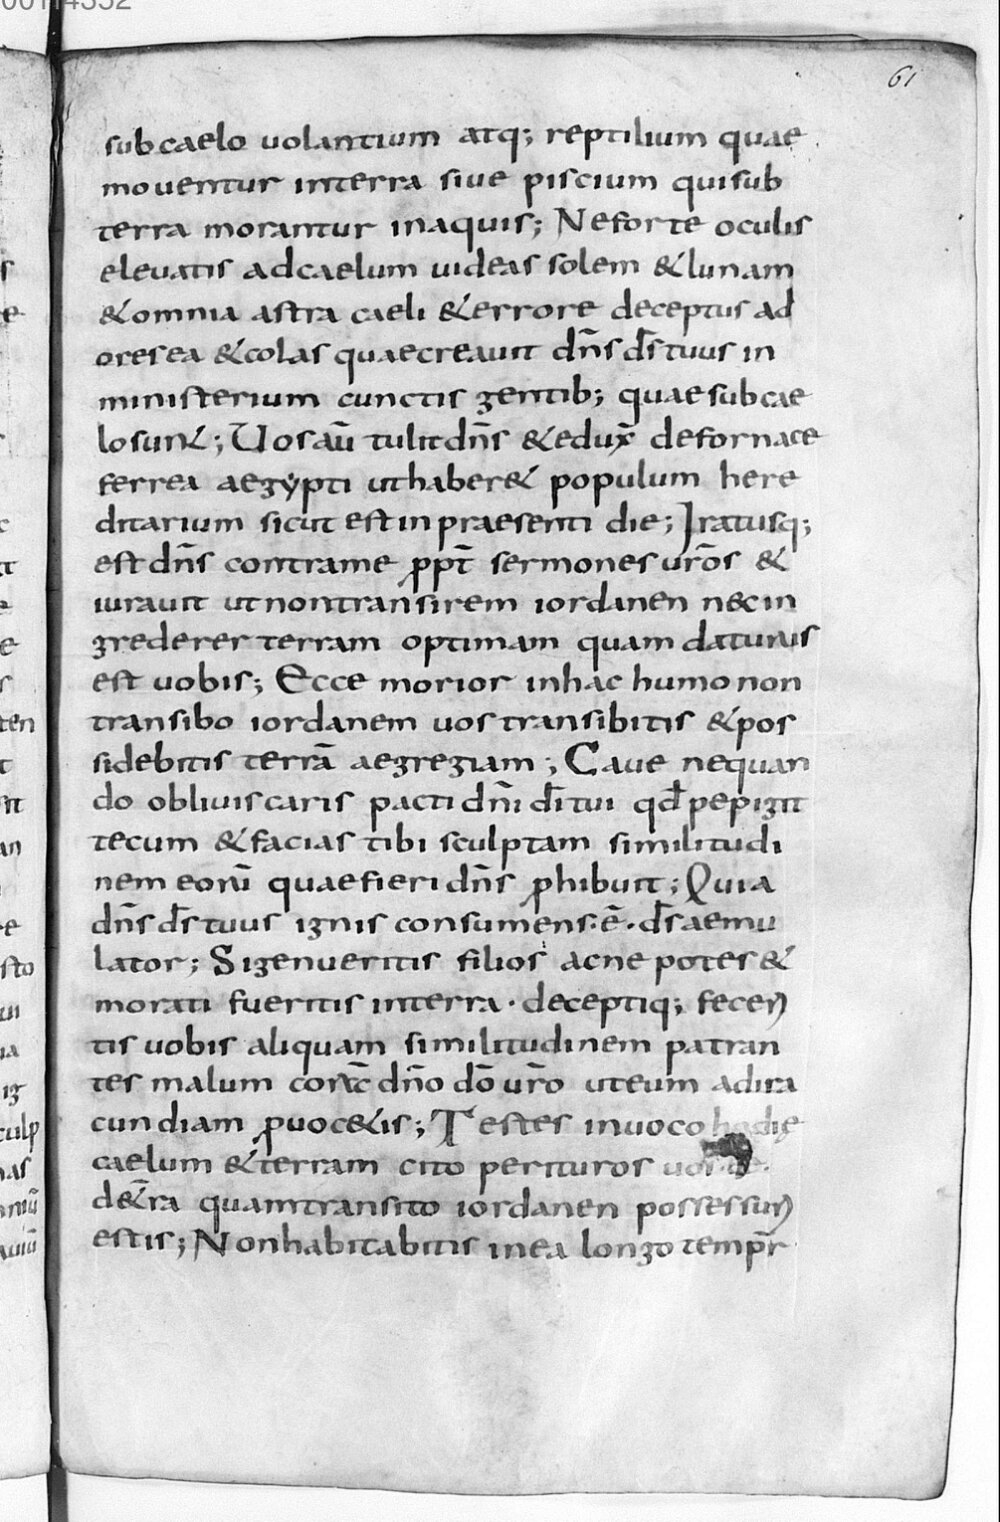 61
sub caelo uolantium atq; reptilium quae
mouentur interra siue piscium quisub
terra morantur inaquis; Neforte oculis
eleuatis adcaelum uideas solem &lunam
&omnia astra caeli &errore deceptus ad
oresea &colas quaecreauit dn̄s ds̄ tuus in
ministerium cunctis gentib; quaesubcae
losunt; Uosaū tulitdn̄s &edux̄ defornace
ferrea aegypti uthaber& populum here
ditarium sicut estinpraesenti die; Iratusq;
estdn̄s contrame ꝓpt̄ sermonesur̄os &
iurauit utnontransirem iordanen necin
grederer terram optimam quam daturus
est uobis; Ecce morior inhac humonon
transibo iordanem uos transibitis &pos
sidebitis terrā aegregiam; Caue nequan
do obliuiscaris pacti dn̄i dī tui qd̄ pepigit
tecum &facias tibi sculptam similitudi
nem eorū quaefieri dn̄s ꝓhibuit; Quia
dn̄s ds̄ tuus ignis consumens·ē· ds̄ aemu
lator; Sigenueritis filios acnepotes &
morati fueritis interra· deceptiq; fecer
tis uobis aliquam similitudinem patran
tes malum cort̄c dn̄o dō ur̄o uteum adira
cundiam ꝓuoc&is; Testes inuoco hodię
caelum &terram cito perituros uos
d&̄ra quamtransito iordanen possessur
estis; Nonhabitabitis inea longo temp̄r